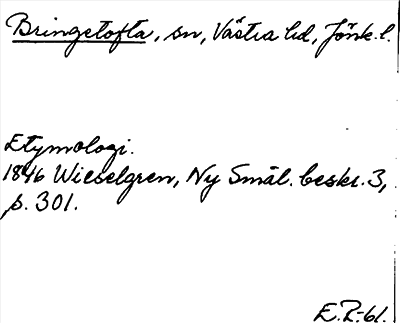 Bringetofta, sn, Västra hd, Jönk. l.
Etymologi.
1846 Wieselgren, Ny Smål. beskr. 3,
p. 301.
E.R-61.